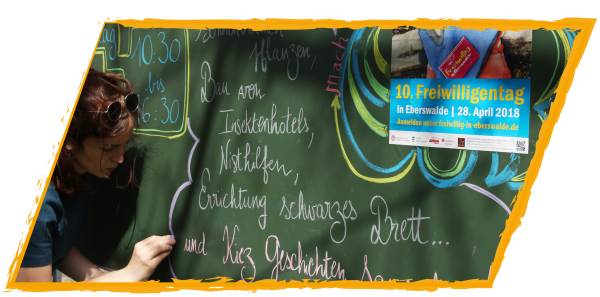 10:30
bis
16:30
Pflanzen,
Mach
Bau von
Insektenhotels,
Nisthilfen,
Errichtung schwarzes Brett...
und Kiez Geschichten
10. Freiwilligentag
in Eberswalde | 28. April 2018
Anmelden unter freiwillig-in-eberswalde.de